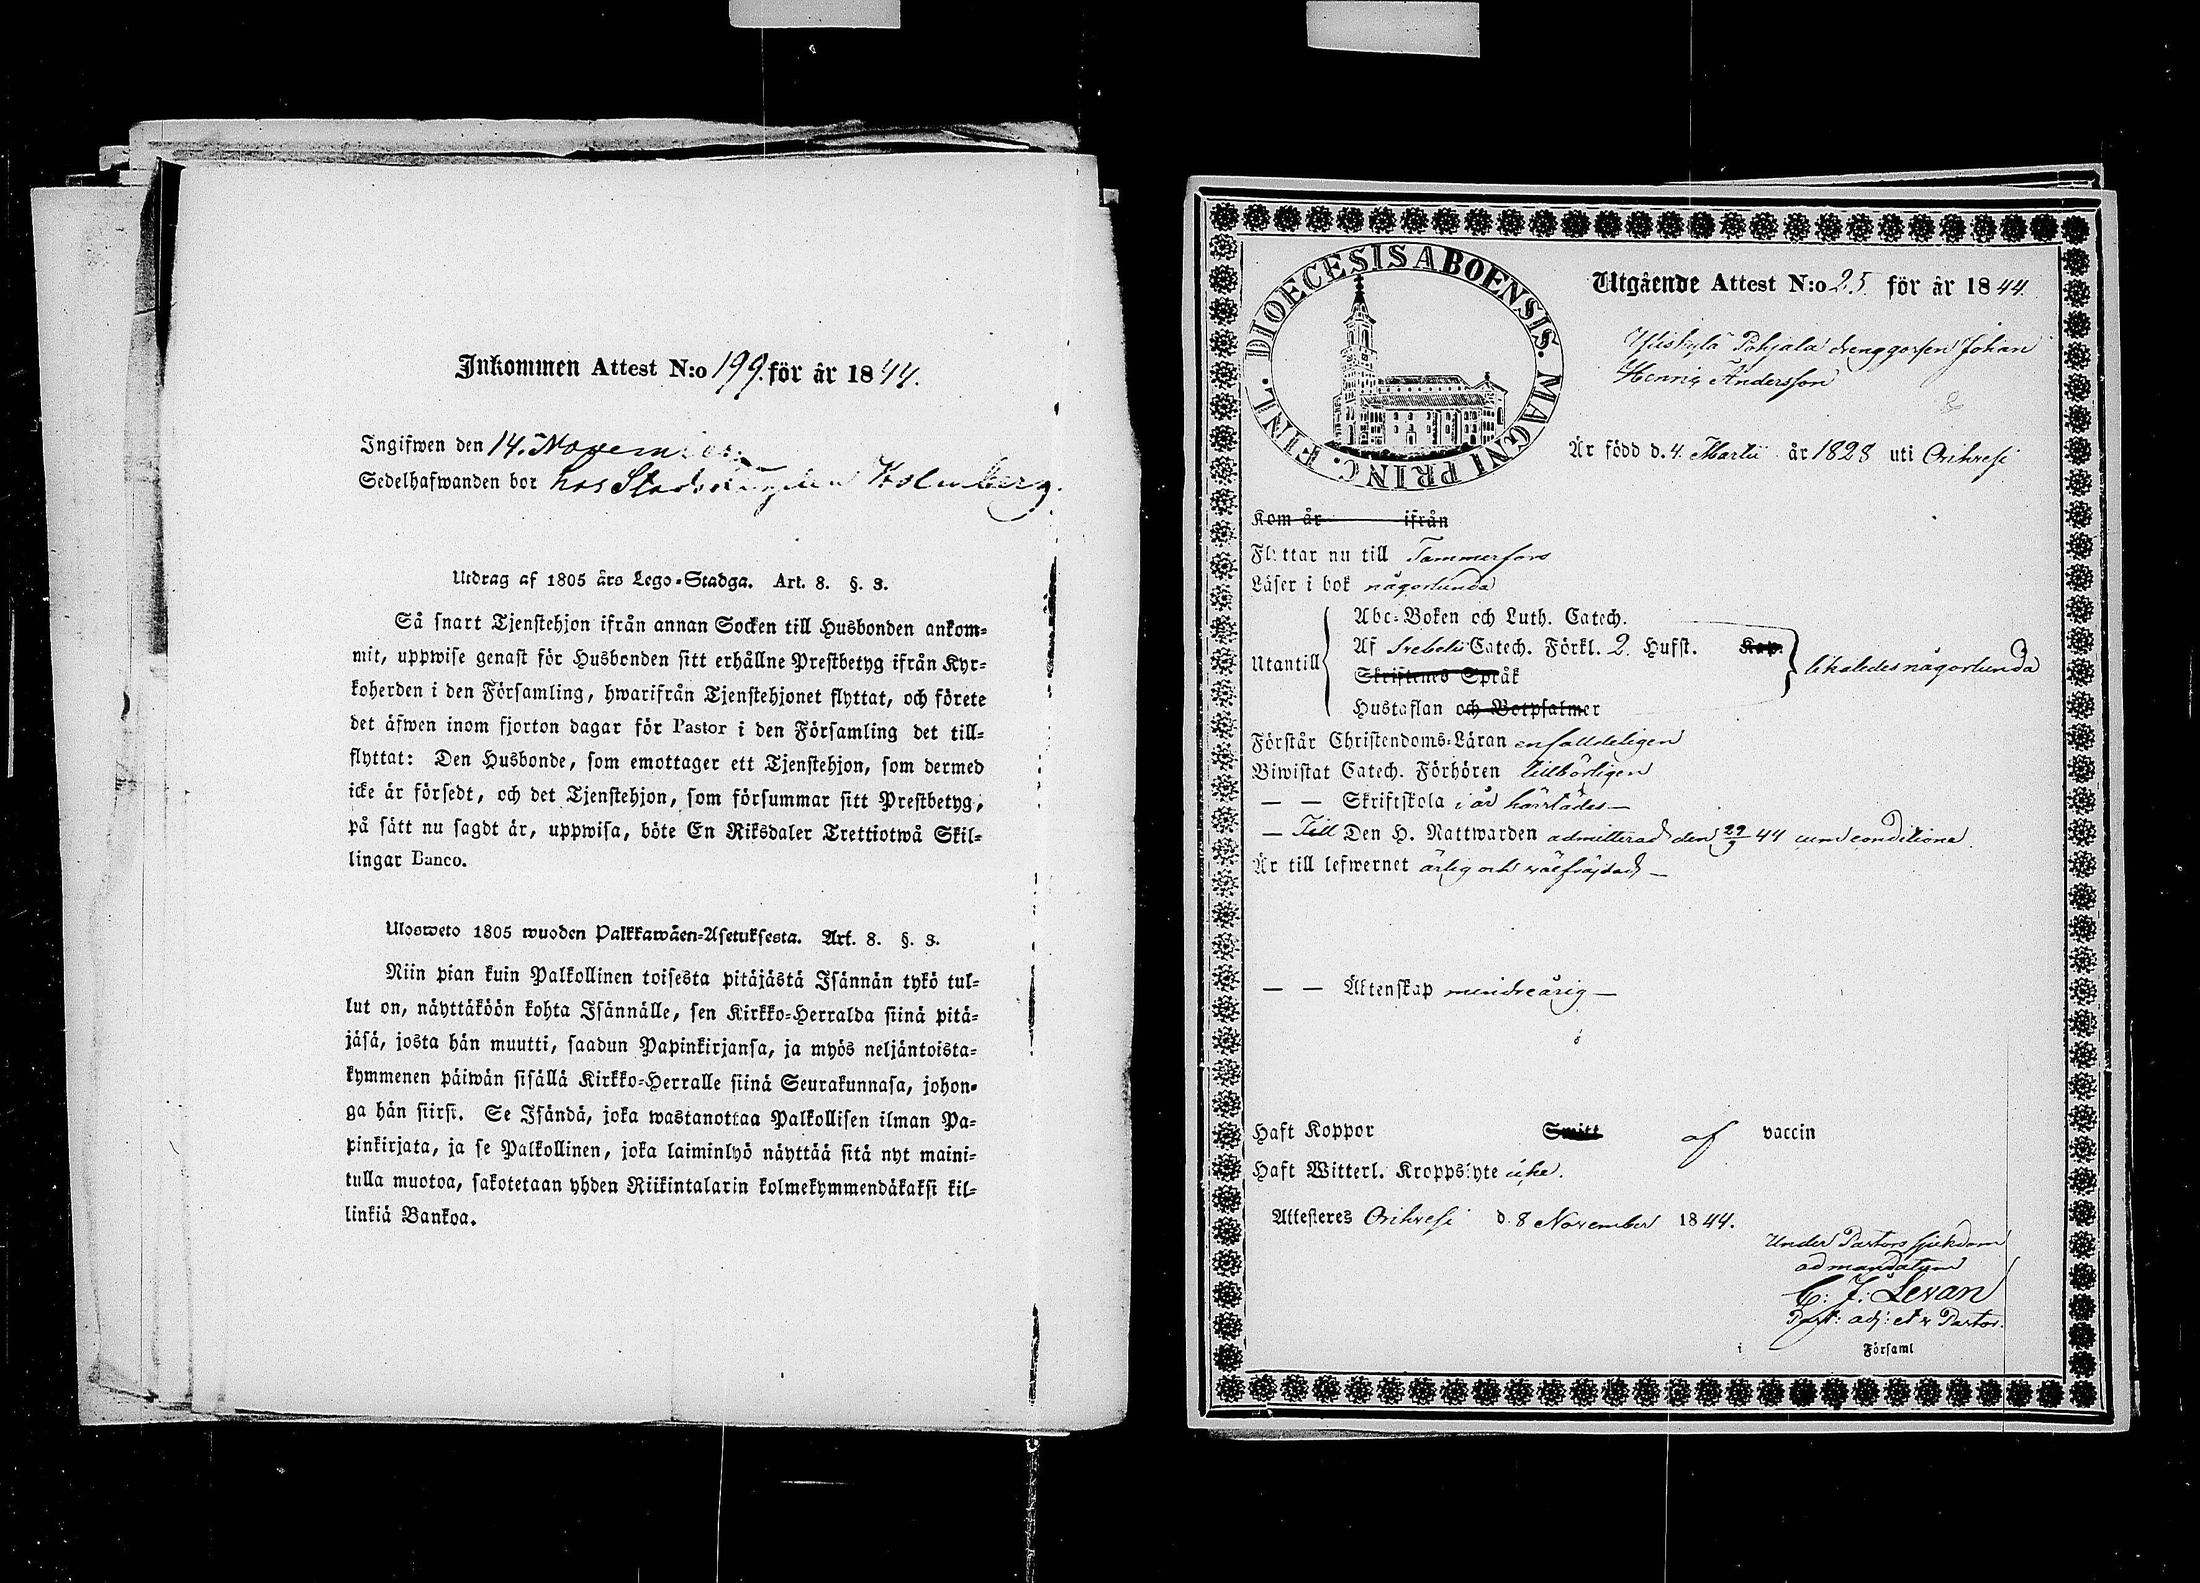 Inkommen Attest N:o 199. för år 1844.
Ingifwen den 14. November
Sedelhafwanden bor hos Holmberg.
Utdrag af 1805 års Lego-Stadga. Art. 8. §. 3.
Så snart Tjenstehjon ifrån annan Socken till Husbonden ankom-
mit, uppwise genast för Husbonden sitt erhållne Prestbetyg ifrån Kyr-
koherden i den Församling, hwarifrån Tjenstehjonet flyttat, och förete
det äfwen inom fjorton dagar för Pastor i den Församling det till-
flyttat: Den Husbonde, som emottager ett Tjenstehjon, som dermed
icke är försedt, och det Tjenstehjon, som försummar sitt Prestbetyg,
på sätt nu sagdt är, uppwisa, böte En Riksdaler Trettiotwå Skil-
lingar Banco.
Ulosweto 1805 wuoden Palkkawäen-Asetuksesta. Art. 8. §. 3.
Niin pian kuin Palkollinen toisesta pitäjästä Isännän tykö tul-
lut on, näyttäköön kohta Isännälle, sen Kirkko-Herralda siinä pitä-
jäsä, josta hän muutti, saadun Papinkirjansa, ja myös neljäntoista-
kymmenen päiwän sisällä Kirkko-Herralle siinä Seurakunnasa, johon-
ga hän siirsi. Se Isändä, joka wastanottaa Palkollisen ilman Pa-
pinkirjata, ja se Palkollinen, joka laiminlyö näyttää sitä nyt maini-
tulla muotoa, sakotetaan yhden Riikintalarin kolmekymmendäkaksi kil-
linkiä Bankoa.
DIOECESIS ABOENSIS. MAGNI PRINC. FINL.
Utgående Attest N:o 25 för år 1844.
Yliskylä Pohjala drenggossen Johan
Henric Andersson
Är född d. 4. Martii år 1828 uti Orihvesi
Kom år ifrån
Flyttar nu till Tammerfors
Läser i bok någorlunda
Abc-Boken och Luth. Catech.
Utantill Af Svebelii Catech. Förkl. 2. Hufst. Kap. likaledes någorlunda
Skriftenes Språk
Hustaflan och Botpsalmer
Förstår Christendoms-Läran enfalldeligen
Biwistat Catech. Förhören tillbörligen
— — Skriftskola i år härstädes —
— Till Den H. Nattwarden admitterad den 29/9 44 cum conditione.
Är till lefwernet ärlig och välfräjdad —
— — Äktenskap mindreårig —
Haft Koppor Smitt af vaccin
Haft Witterl. Kroppslyte icke.
Attesteres Orihvesi d. 8 November 1844.
Under Pastors sjukdom
ad mandatum
C: J: Levan
Past: adj: et v Pastor.
i Församl